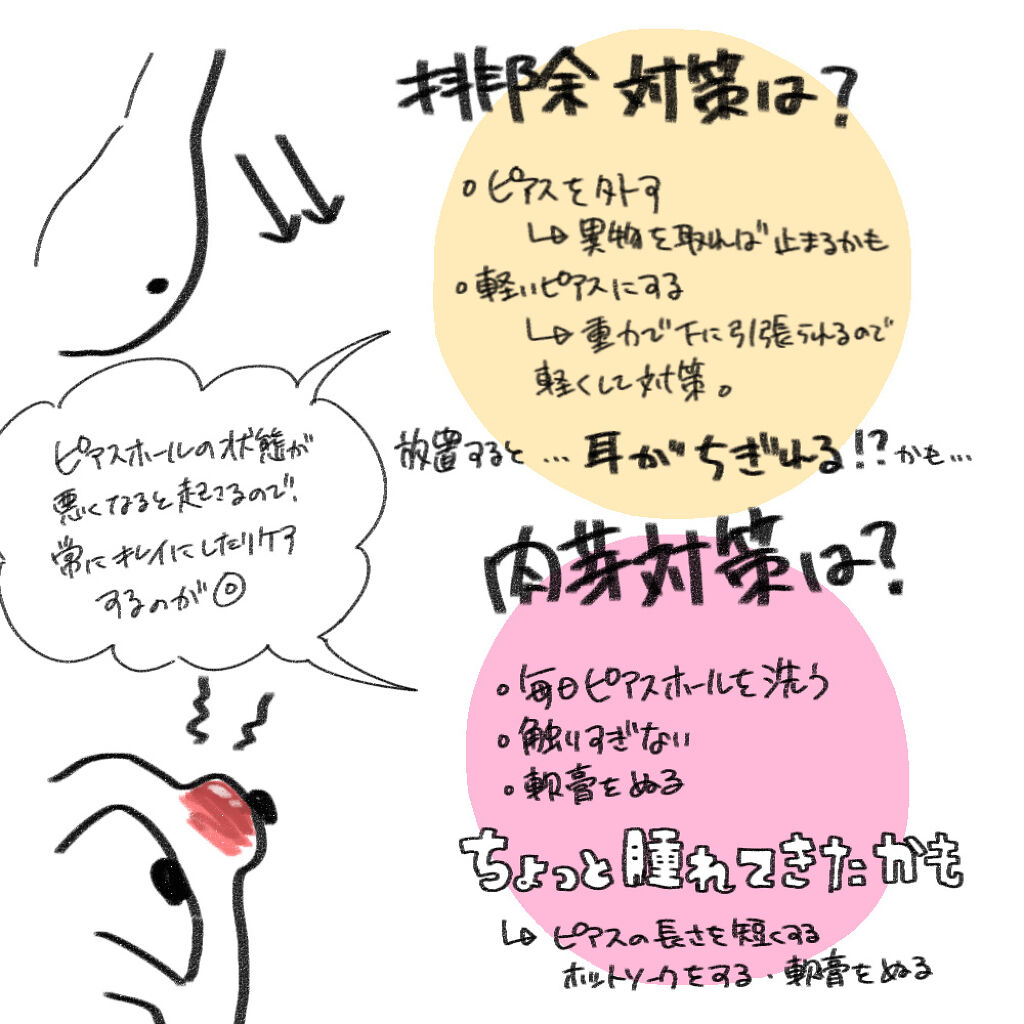 排除対策は?
○ピアスを外す
↳異物を取れば止まるかも
○軽いピアスにする
↳重力で下に引張られるので
軽くして対策。
放置すると…耳がちぎれる!?かも…
ピアスホールの状態が
悪くなると起こるので!
常にキレイにしたりケア
するのが◎
肉芽対策は?
○毎日ピアスホールを洗う
○触りすぎない
○軟膏をぬる
ちょっと腫れてきたかも
↳ピアスの長さを短くする
ホットソークをする・軟膏をぬる